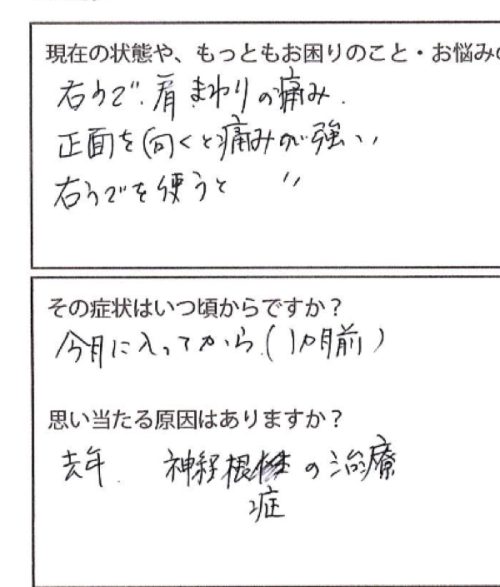 現在の状態や、もっともお困りのこと・お悩みの
右うで、肩まわりの痛み.
正面を向くと痛みが強い
右うでを使うと 〃
その症状はいつ頃からですか？
今月に入ってから.(1ヵ月前)
思い当たる原因はありますか？
去年. 神経根 の治療
症